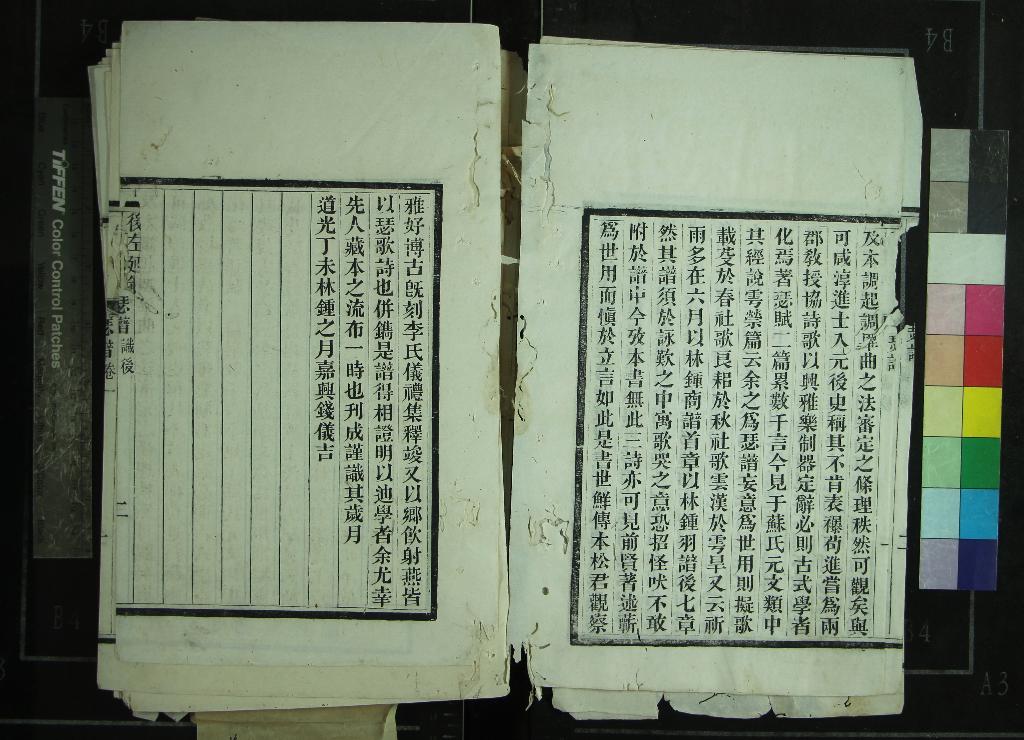 及本調起調畢曲之法審定之條理秩然可觀矣與
可咸淳進士入元後史稱其不肯表襮苟進嘗為兩
郡教授協詩歌以興雅樂制器定辭必則古式學者
化焉著瑟賦二篇累數千言今見于蘇氏元文類中
其經說雩禜篇云余之為瑟譜妄意為世用則擬歌
載芟於春社歌良耜於秋社歌雲漢於雩旱又云祈
雨多在六月以林鍾商譜首章以林鍾羽譜後七章
然其譜須於詠歎之中寓歌哭之意恐招怪吠不敢
附於譜中今攷本書無此三詩亦可見前賢著述蘄
為世用而慎於立言如此是書世鮮傳本松君觀察
雅好博古旣刻李氏儀禮集釋竣又以鄉飲射燕皆
以瑟歌詩也併鐫是譜得相證明以迪學者余尤幸
先人藏本之流布一時也刊成謹識其歲月
道光丁未林鍾之月嘉興錢儀吉
瑟譜 識後
二
TIFFEN Color Control Patches
B4
B4
A3